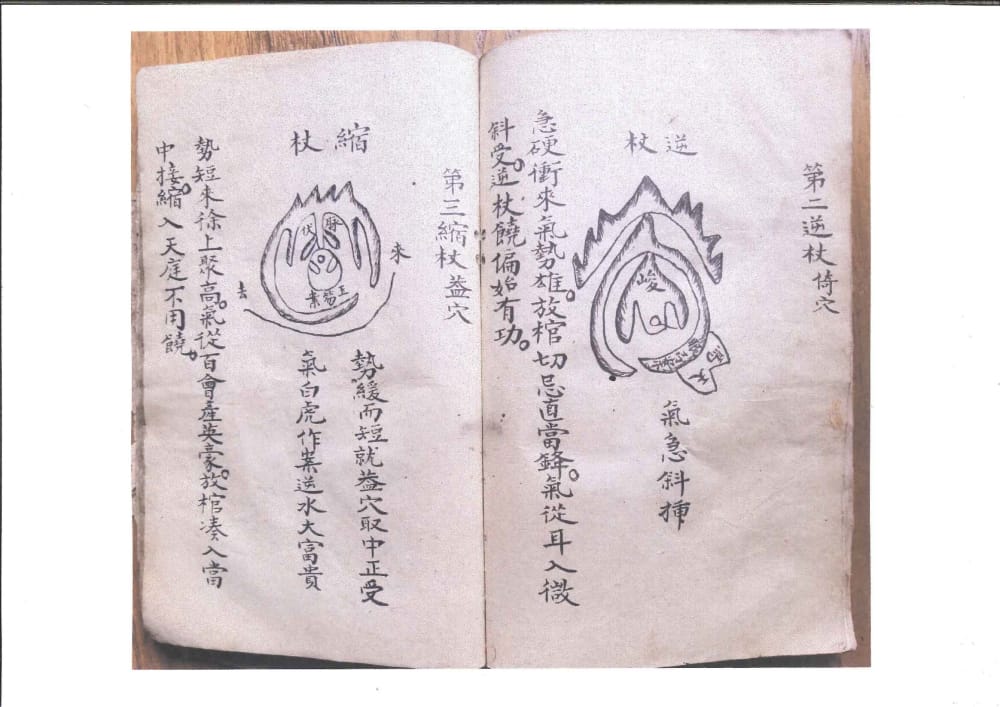 第二逆杖倚穴
逆杖
峻
氣急斜挿
急硬衝來氣勢雄。放棺切忌直當鋒。氣從耳入微
斜受。逆杖饒偏始有功。
第三縮杖葢穴
縮杖
來
去
玉筯案
勢緩而短就葢穴取中正受
氣白虎作案逆水大富貴
勢短來徐上聚高。氣從百會產英豪。放棺凑入當
中接。縮入天庭不用饒。